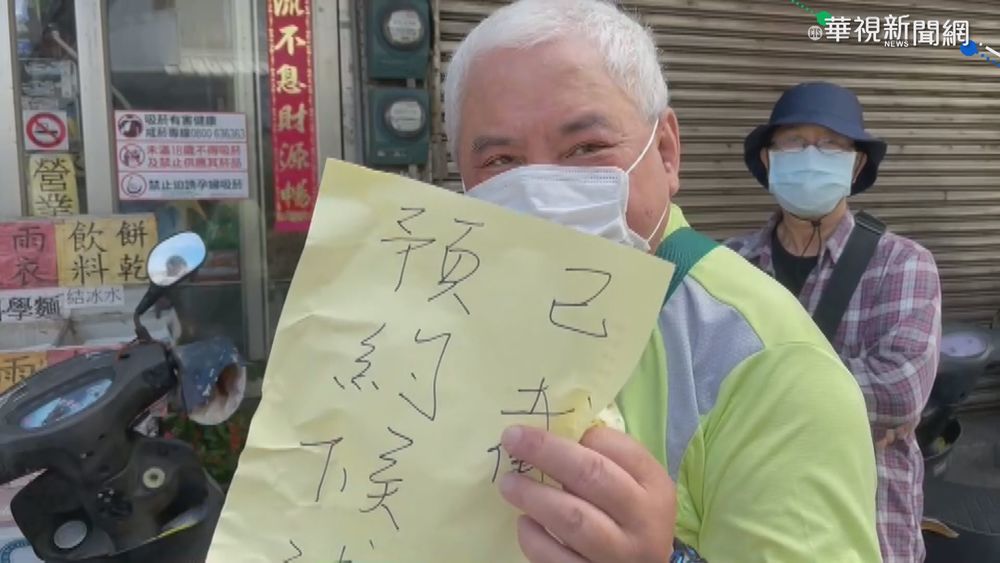 華視新聞網
NEWS
流不息財源暢
吸菸有害健康
戒菸專線0800 636363
未滿18歲不得吸菸
及禁止供應菸品
禁止迫誘孕婦吸菸
營業
餅乾
飲料
雨衣
學麵
結冰水
雨
已
預約下